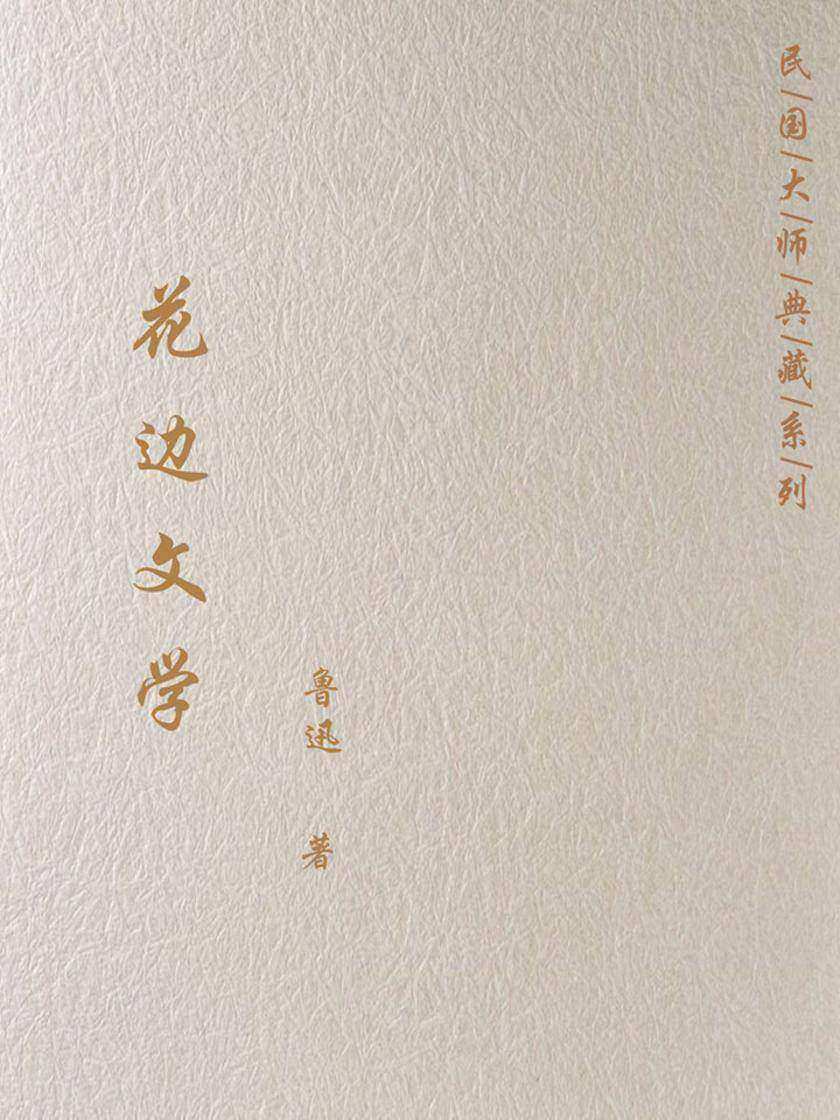 民/国/大/师/典/藏/系/列
花边文学
鲁迅 著